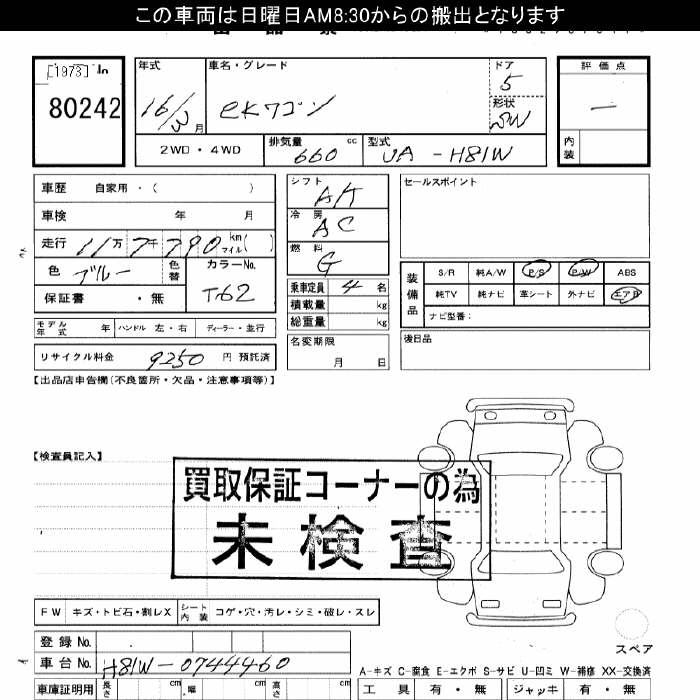 この車両は日曜日AM8:30からの搬出となります
[1973]
80242
年式 車名・グレード ドア 評価点
16/3月 eKワゴン 5
形状 SW
2WD・4WD 排気量 660 cc 型式 UA-H81W
内装
車歴 自家用・( )
シフト A/T
セールスポイント
車検 年 月
冷房 AC
走行 11万7千790 km マイル( )
燃料 G
色 ブルー 色替 カラーNo. T62
装備品 S/R 純A/W P/S P/W ABS
乗車定員 4 名
純TV 純ナビ 革シート 外ナビ エアB
保証書 ・無
積載量 kg
ナビ型番:
総重量 kg
モデル年式 年 ハンドル 左・右 ディーラー・並行
後日品
リサイクル料金 9250 円 預託済
名変期限 月 日
【出品店申告欄(不良箇所・欠品・注意事項等)】
【検査員記入】
買取保証コーナーの為
未検査
FW キズ・トビ石・割レX シート内装 コゲ・穴・汚レ・シミ・破レ・スレ
スペア
登録 No.
車台 No. H81W-0744460
A-キズ C-腐食 E-エクボ S-サビ U-凹ミ W-補修 XX-交換済
車庫証明用 長さ cm 幅 cm cm
工具 有・無 ジャッキ 有・無